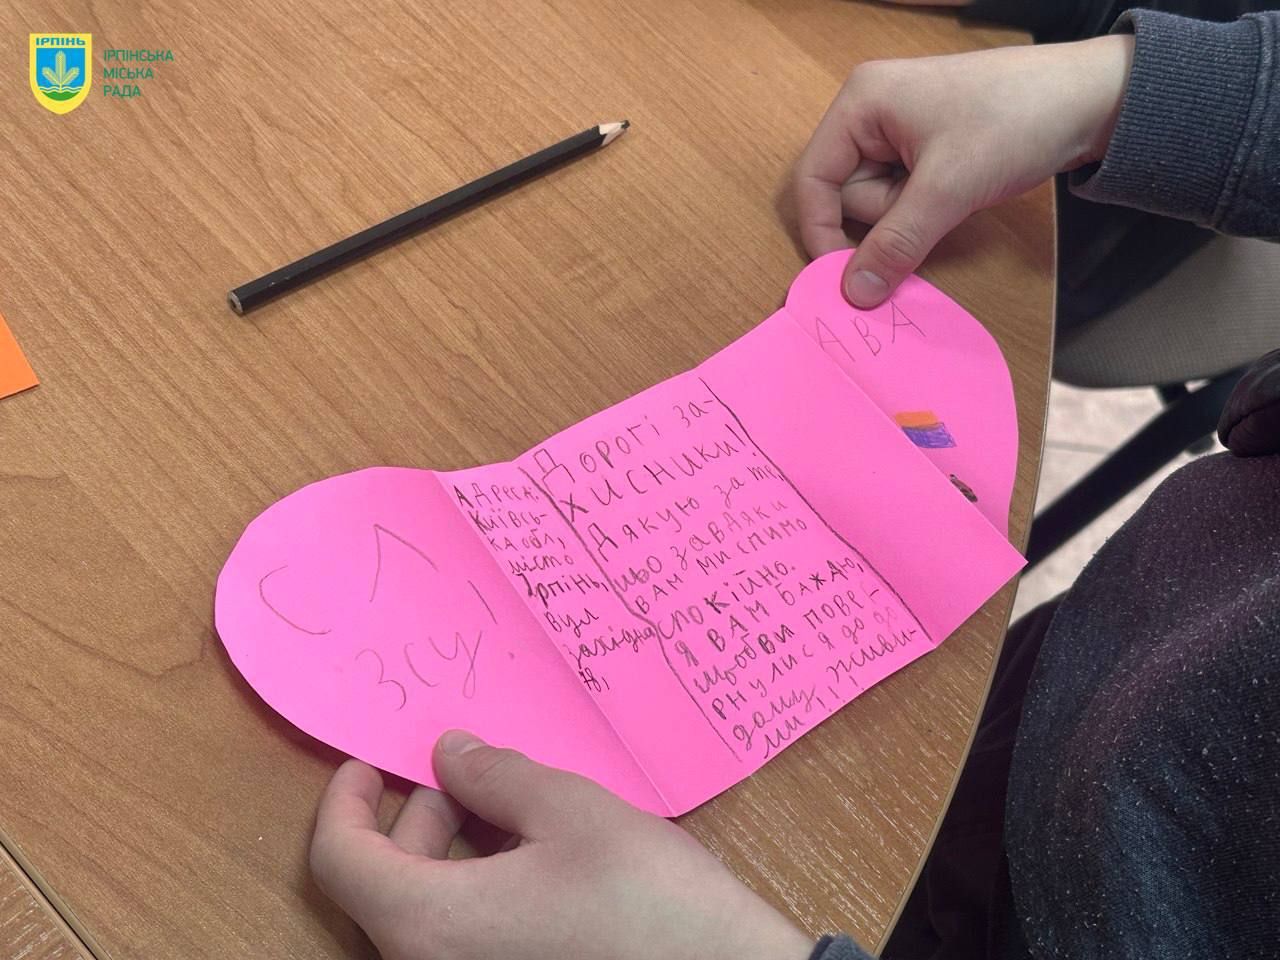 ІРПІНЬ
ІРПІНСЬКА
МІСЬКА
РАДА
СЛ
АВА
ЗСУ!
Адреса:
Київсь-
ка обл,
місто
Ірпінь,
вул
західна
78,
Дорогі за-
хисники!
Дякую за те,
що завдяки
вам ми спимо
спокійно.
Я вам бажаю,
щоб ви пове-
рнулися до до
дому живи-
ми!!!